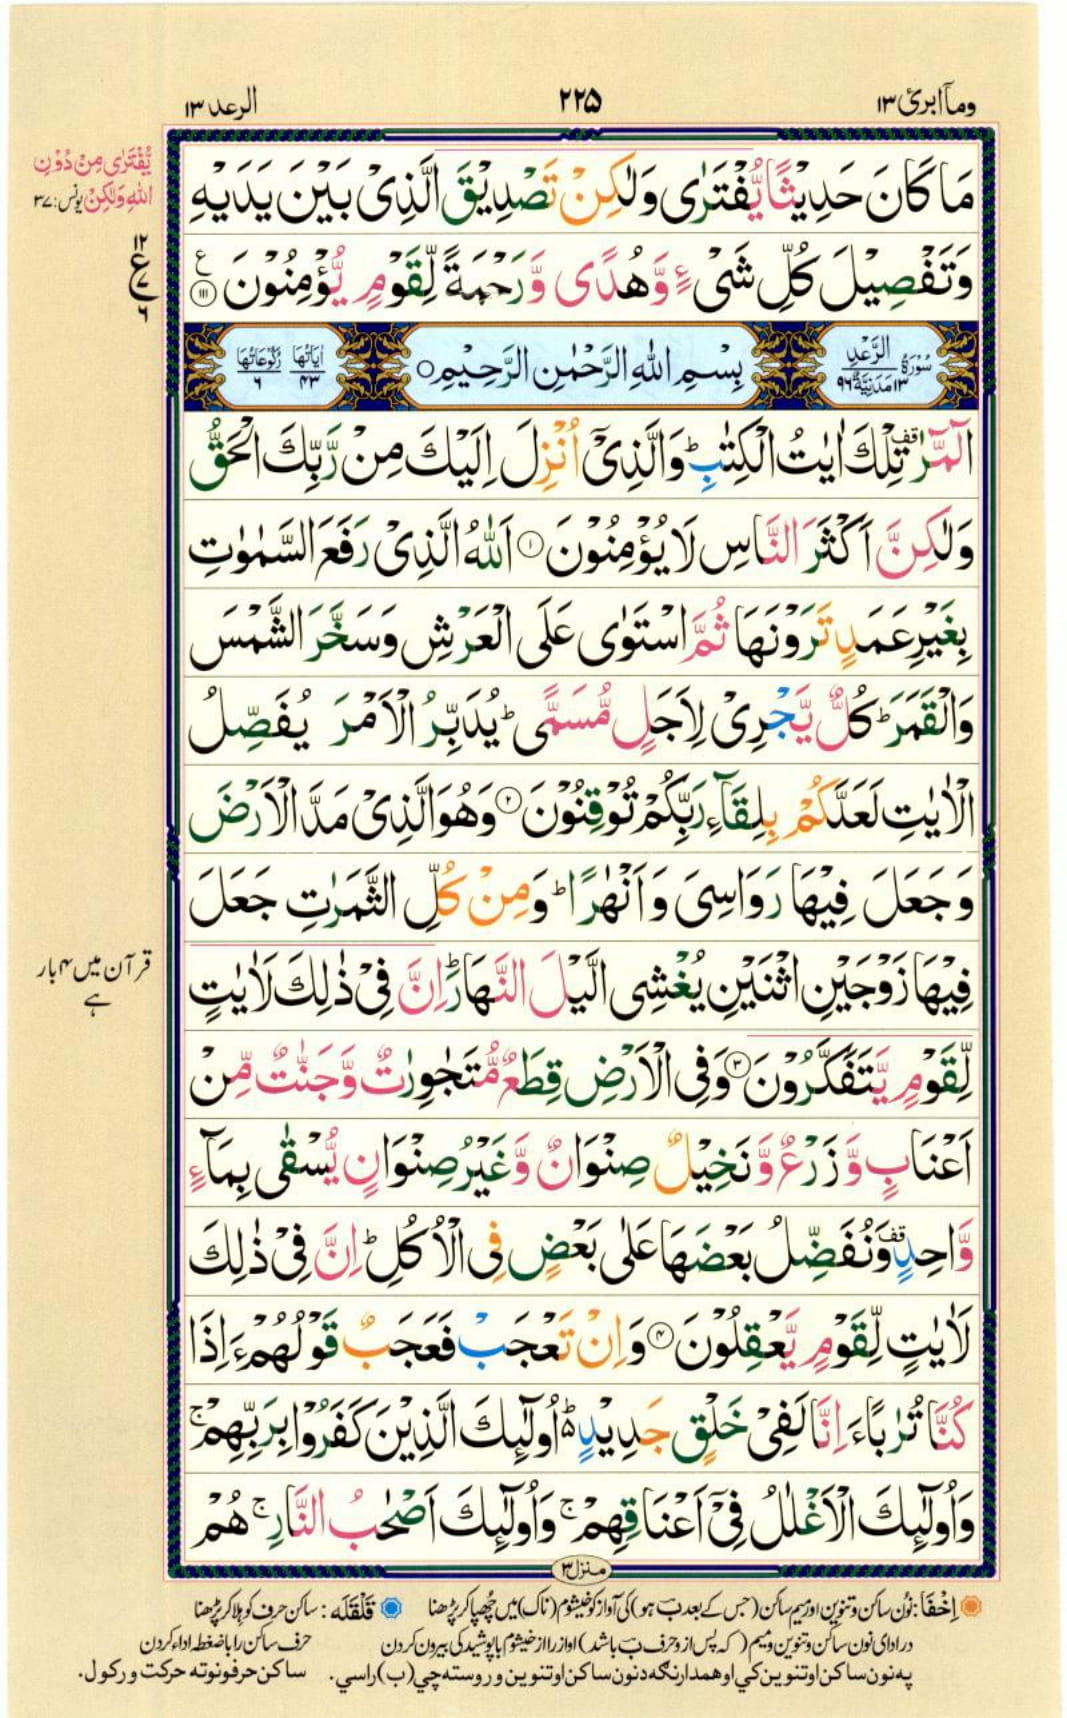 ومآابرئ ١٣
٢٢٥
الرعد ١٣
مَا كَانَ حَدِيْثًا يُّفْتَرٰى وَلٰكِنْ تَصْدِيْقَ الَّذِىْ بَيْنَ يَدَيْهِ
وَتَفْصِيْلَ كُلِّ شَىْءٍ وَّهُدًى وَّرَحْمَةً لِّقَوْمٍ يُّؤْمِنُوْنَ ۝١١١ ع
سُوْرَةُ الرَّعْدِ ١٣ مَدَنِيَّةٌ ٩٦
بِسْمِ اللّٰهِ الرَّحْمٰنِ الرَّحِيْمِ ۝
اٰيَاتُهَا ٤٣ رُكُوْعَاتُهَا ٦
الٓمّٓرٰ قف تِلْكَ اٰيٰتُ الْكِتٰبِ ؕ وَالَّذِىْۤ اُنْزِلَ اِلَيْكَ مِنْ رَّبِّكَ الْحَقُّ
وَلٰكِنَّ اَكْثَرَ النَّاسِ لَا يُؤْمِنُوْنَ ۝١ اَللّٰهُ الَّذِىْ رَفَعَ السَّمٰوٰتِ
بِغَيْرِ عَمَدٍ تَرَوْنَهَا ثُمَّ اسْتَوٰى عَلَى الْعَرْشِ وَسَخَّرَ الشَّمْسَ
وَالْقَمَرَ ؕ كُلٌّ يَّجْرِىْ لِاَجَلٍ مُّسَمًّى ؕ يُدَبِّرُ الْاَمْرَ يُفَصِّلُ
الْاٰيٰتِ لَعَلَّكُمْ بِلِقَآءِ رَبِّكُمْ تُوْقِنُوْنَ ۝٢ وَهُوَ الَّذِىْ مَدَّ الْاَرْضَ
وَجَعَلَ فِيْهَا رَوَاسِىَ وَاَنْهٰرًا ؕ وَمِنْ كُلِّ الثَّمَرٰتِ جَعَلَ
فِيْهَا زَوْجَيْنِ اثْنَيْنِ يُغْشِى الَّيْلَ النَّهَارَ ؕ اِنَّ فِىْ ذٰلِكَ لَاٰيٰتٍ
لِّقَوْمٍ يَّتَفَكَّرُوْنَ ۝٣ وَفِى الْاَرْضِ قِطَعٌ مُّتَجٰوِرٰتٌ وَّجَنّٰتٌ مِّنْ
اَعْنَابٍ وَّزَرْعٌ وَّنَخِيْلٌ صِنْوَانٌ وَّغَيْرُ صِنْوَانٍ يُّسْقٰى بِمَآءٍ
وَّاحِدٍ قف وَنُفَضِّلُ بَعْضَهَا عَلٰى بَعْضٍ فِى الْاُكُلِ ؕ اِنَّ فِىْ ذٰلِكَ
لَاٰيٰتٍ لِّقَوْمٍ يَّعْقِلُوْنَ ۝٤ وَاِنْ تَعْجَبْ فَعَجَبٌ قَوْلُهُمْ ءَاِذَا
كُنَّا تُرٰبًا ءَاِنَّا لَفِىْ خَلْقٍ جَدِيْدٍ ؕ۬ اُولٰٓئِكَ الَّذِيْنَ كَفَرُوْا بِرَبِّهِمْ ۚ
وَاُولٰٓئِكَ الْاَغْلٰلُ فِىْۤ اَعْنَاقِهِمْ ۚ وَاُولٰٓئِكَ اَصْحٰبُ النَّارِ ۚ هُمْ
منزل ٣
يُّفْتَرٰى مِنْ دُوْنِ
اللّٰهِ وَلٰكِنْ یونس: ٣٧
١٢
ع
٧
٦
قرآن میں ۴ بار
ہے
اِخْفَا: نُون ساکن و تنوین اور میم ساکن (جس کے بعد ب ہو) کی آواز کو خیشوم (ناک) میں چھپا کر پڑھنا
قَلْقَلَه: ساکن حرف کو ہلا کر پڑھنا
در ادای نون ساکن و تنوین و میم (که پس از و حرف ب باشد) آواز را از خیشوم با پوشیدگی بیرون کردن
حرف ساکن را با ضغطه اداء کردن
په نون ساکن او تنوین کي او همدارنګه د نون ساکن او تنوین وروسته چي (ب) راسي.
ساکن حرفونو ته حرکت ورکول.